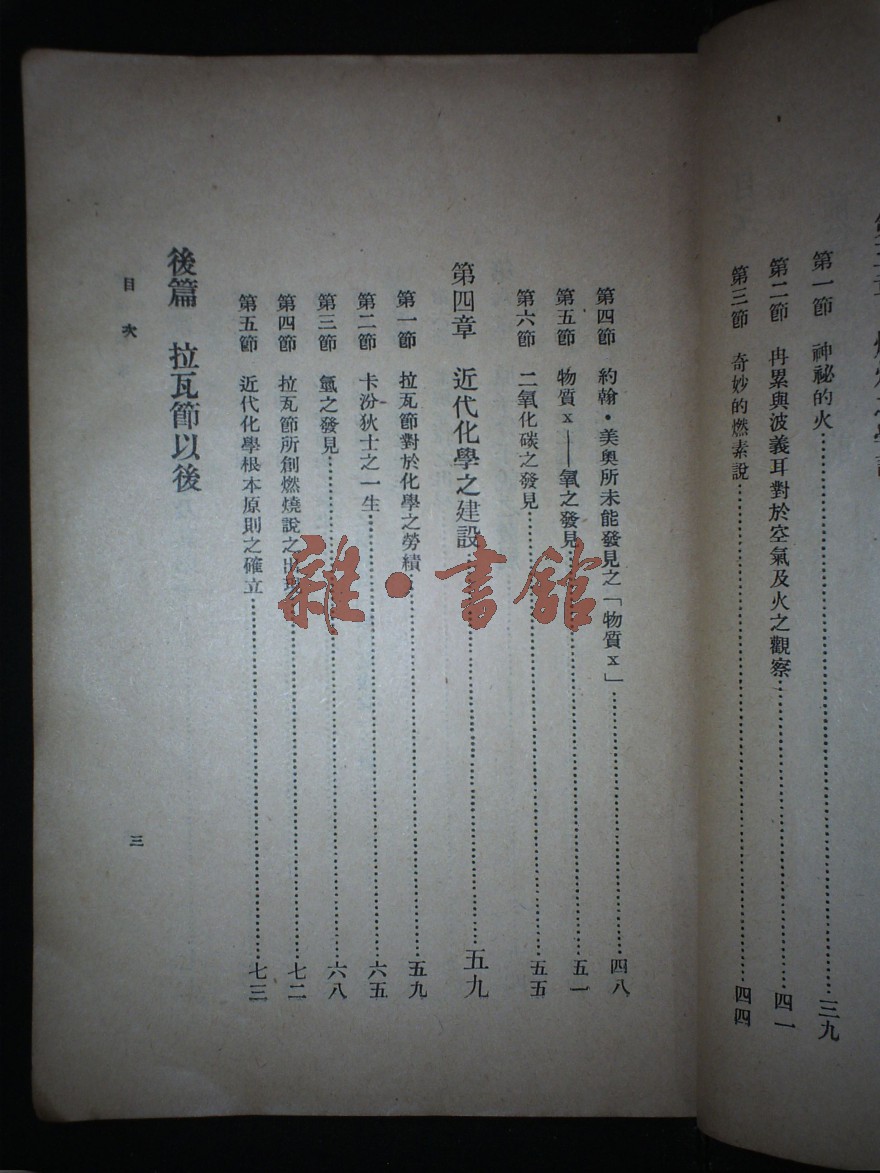 第一節　神祕的火……三九
第二節　冉累與波義耳對於空氣及火之觀察……四一
第三節　奇妙的燃素說……四四
第四節　約翰・美奧所未能發見之「物質x」……四八
第五節　物質x——氧之發見……五一
第六節　二氧化碳之發見……五五
第四章　近代化學之建設……五九
第一節　拉瓦節對於化學之勞績……五九
第二節　卡汾狄士之一生……六五
第三節　氫之發見……六八
第四節　拉瓦節所創燃燒說之出……七二
第五節　近代化學根本原則之確立……七三
後篇　拉瓦節以後
目次
三
雜・書館